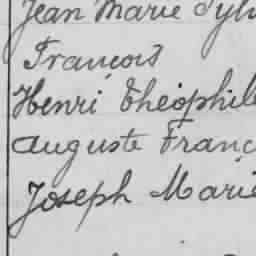 Jean Marie Sylv
François
Henri Théophile
Auguste Franç
Joseph Marie